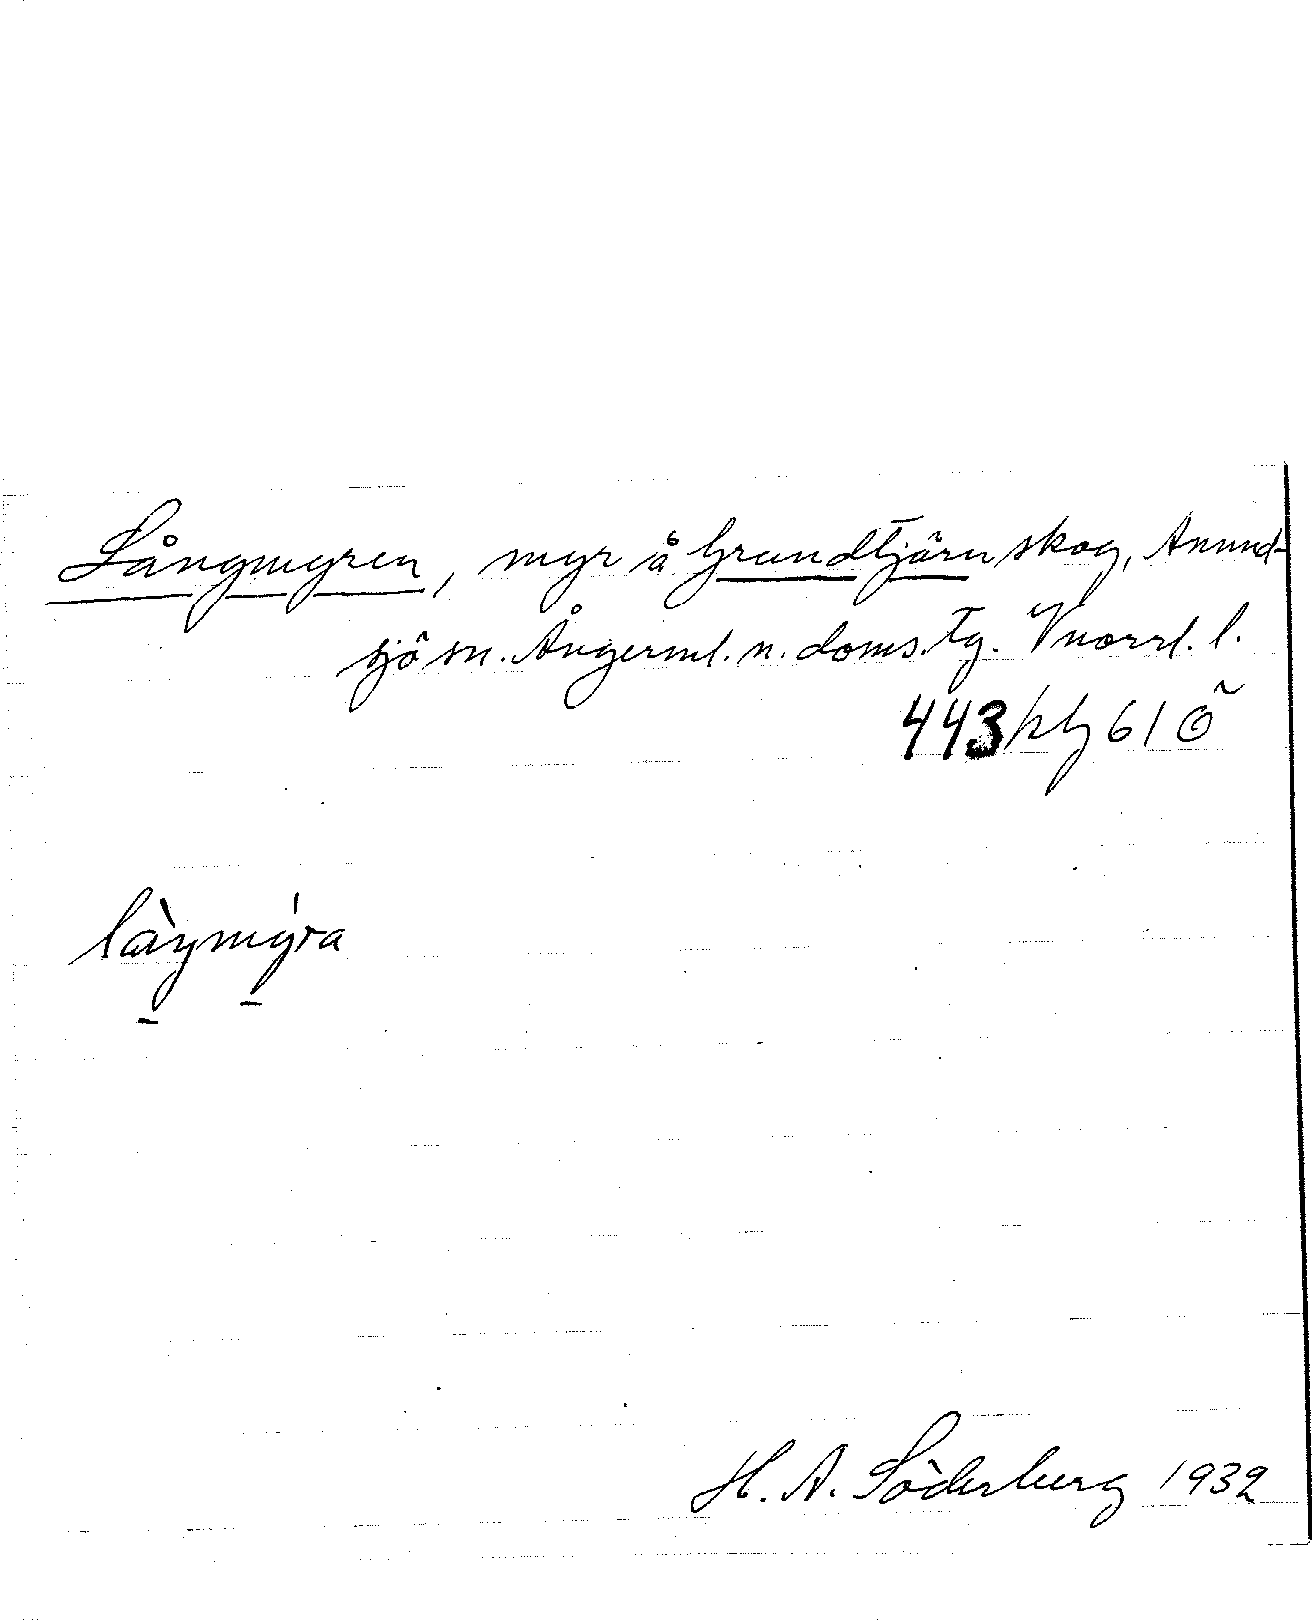 Långmyren, myr å Grundtjärn skog, Anund-
sjö sn. Ångerml. n. doms. tg. Vnorrl. l.
443
làŋmýra
H. A. Söderberg 1932